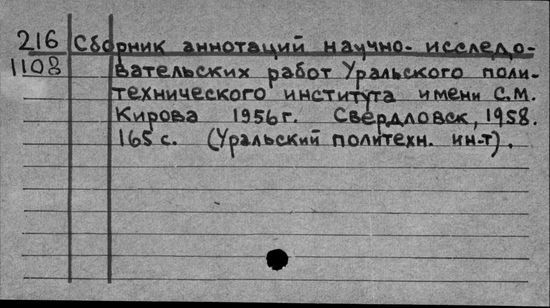 216 Сборник аннотаций научно-исследо-
1108 вательских работ Уральского поли-
технического института имени С.М.
Кирова 1956 г. Свердловск, 1958.
165 с. (Уральский политехн. ин-т).